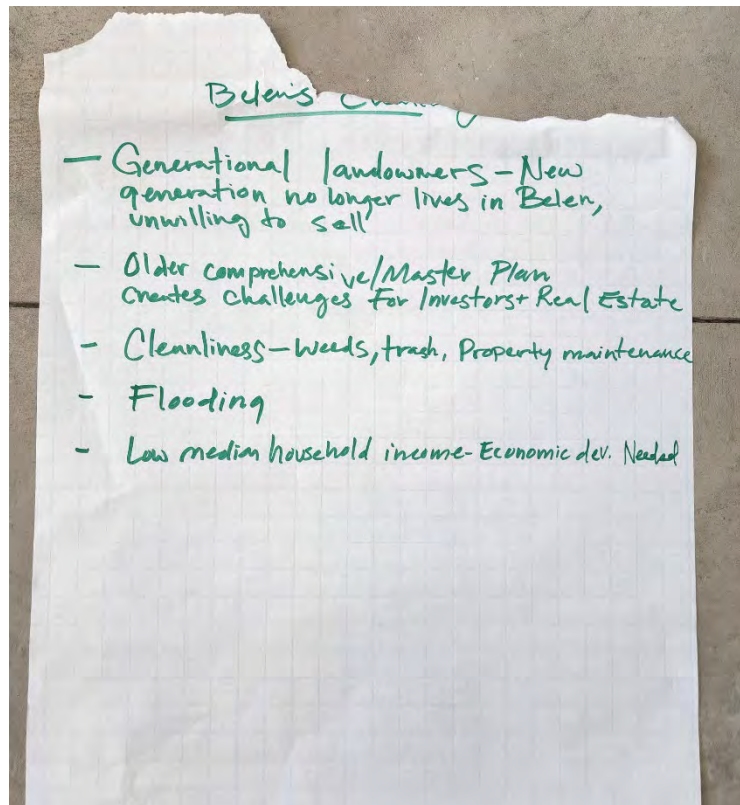 Belen's
— Generational landowners - New
generation no longer lives in Belen,
unwilling to sell
— Older comprehensive/Master Plan
creates challenges For Investors + Real Estate
- Cleanliness - weeds, trash, Property maintenance
- Flooding
- Low median household income - Economic dev. Needed